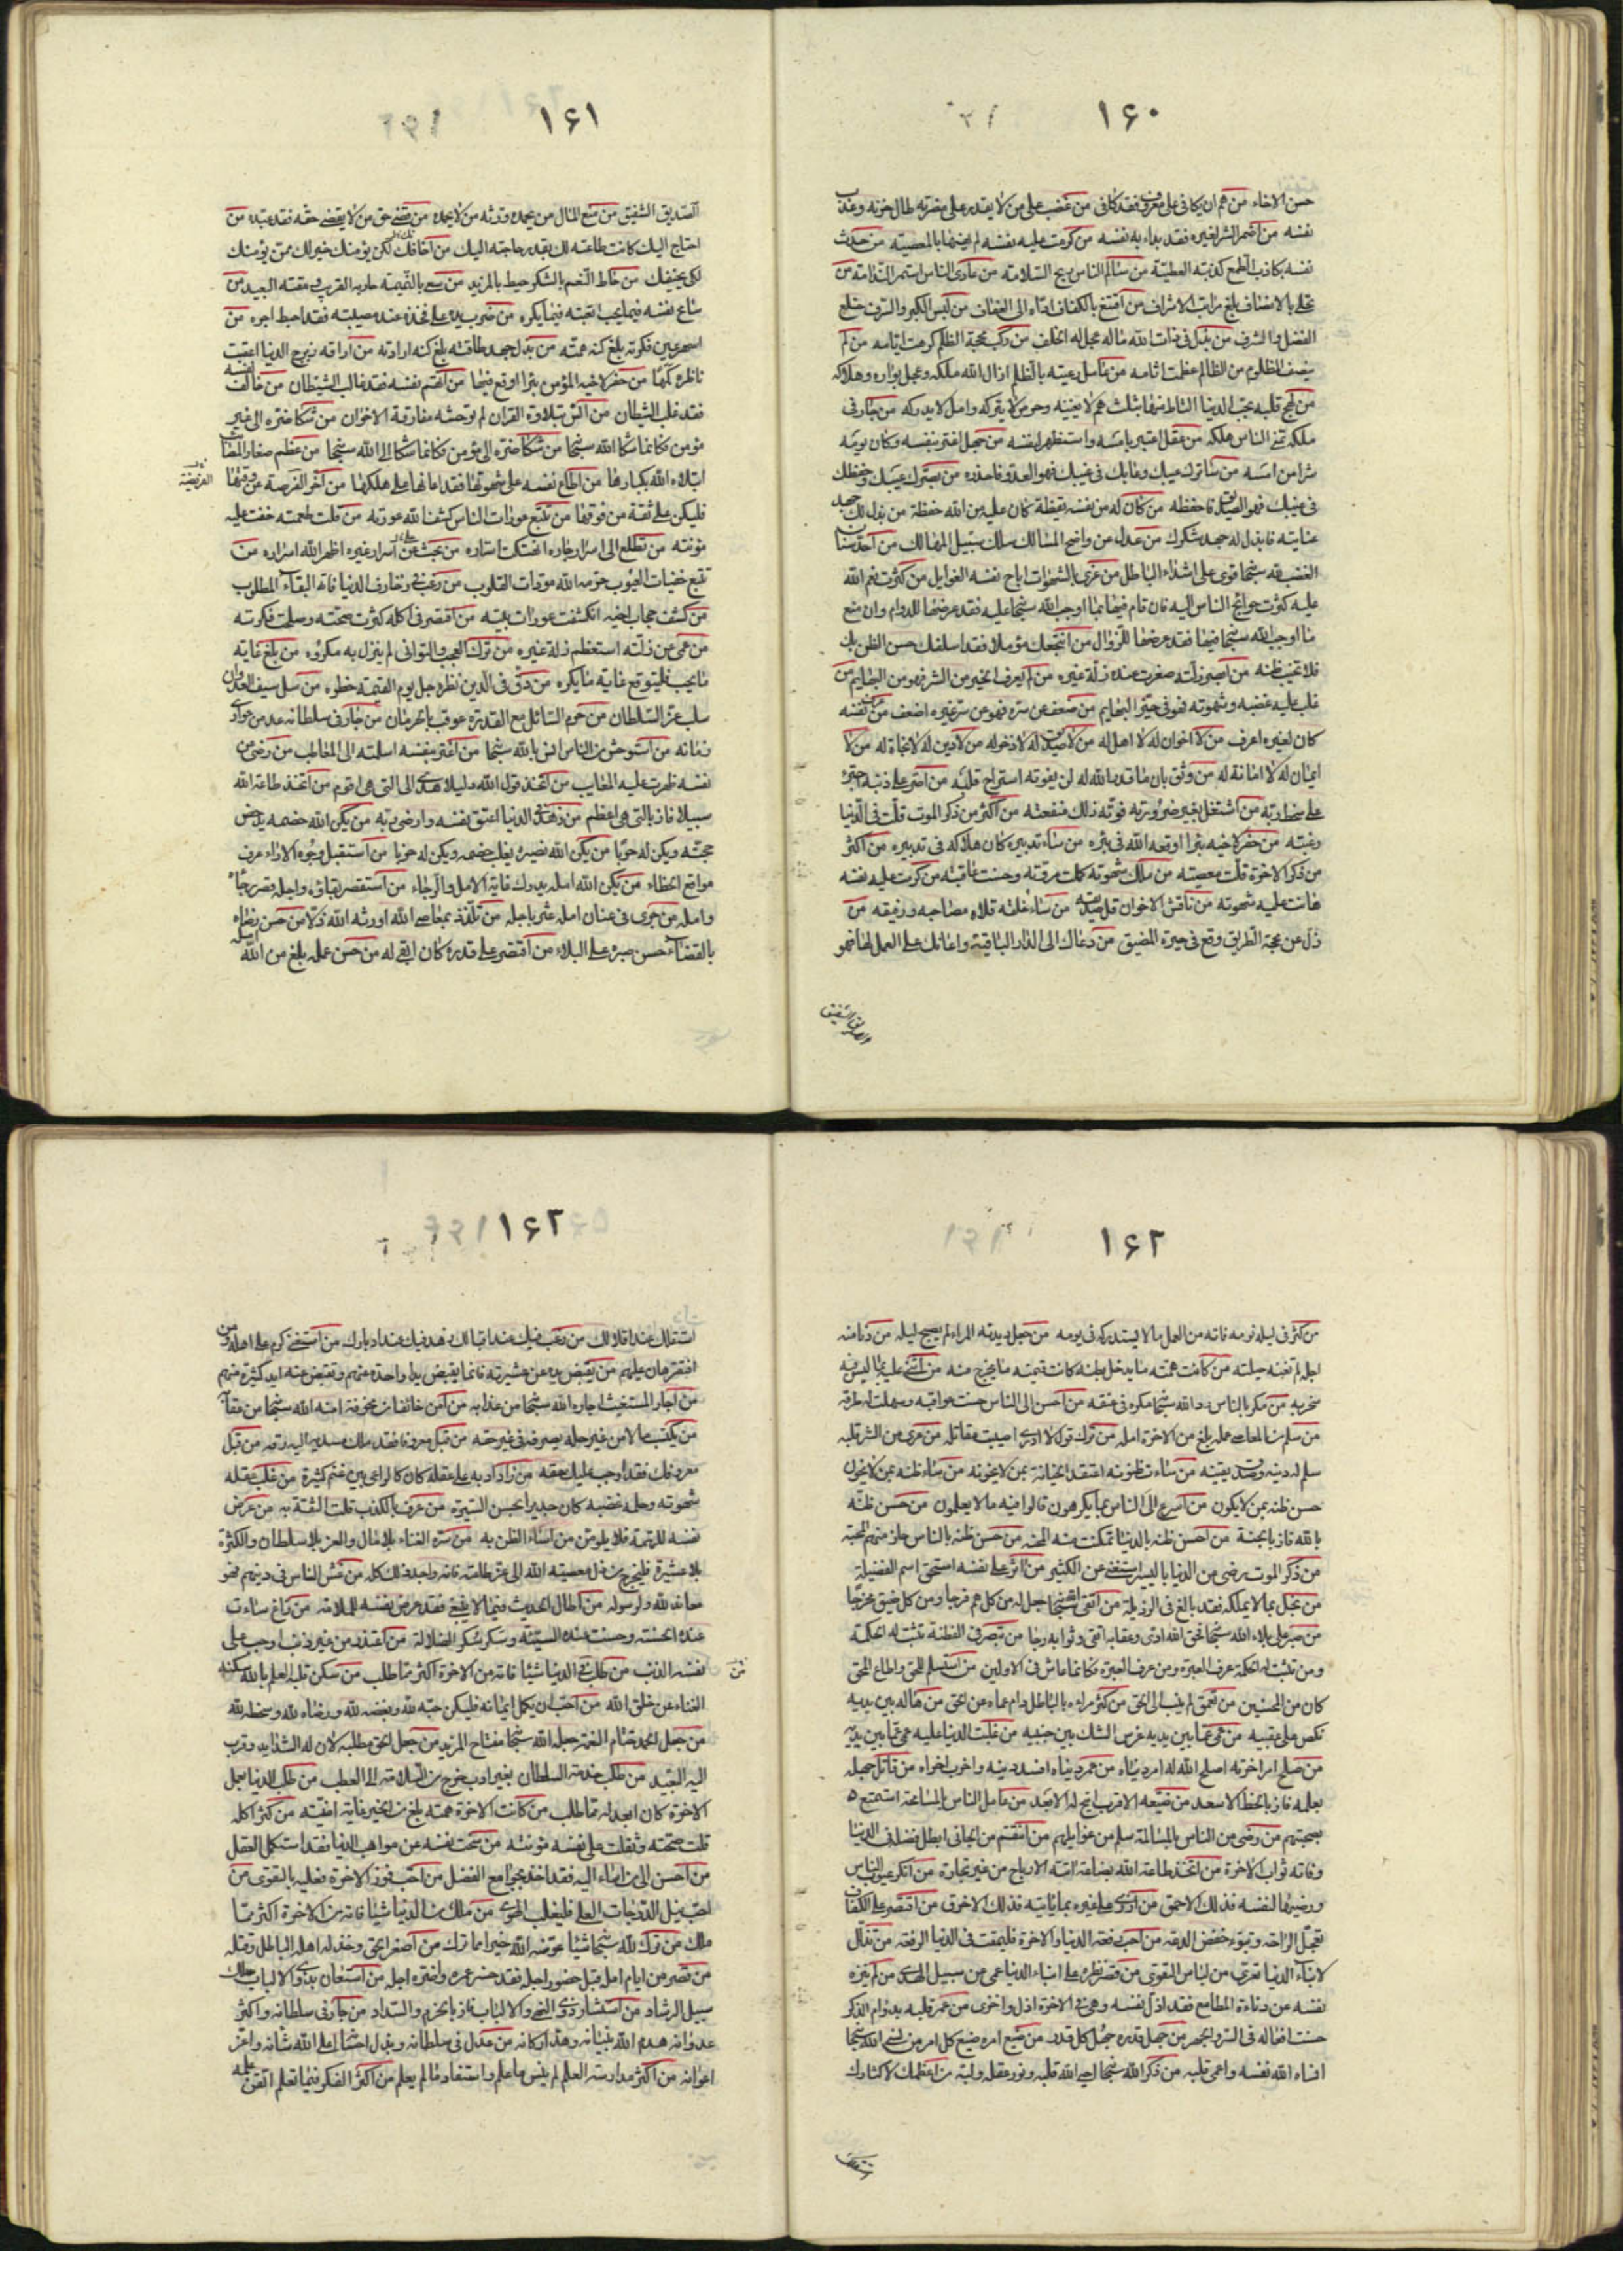 ۱۶۰
حسن الاخاء من هم ان يكافى على معروف فقد كافى من غضب على من لا يقدر على مضرته طال حزنه وعذب
نفسه من اضمر الشر لغيره فقد بداء به نفسه من كرمت عليه نفسه لم يهنها بالمعصيته من حدث
نفسه بكاذب الطمع كذبته العطيّة من سالم الناس ربح السّلامته من عادى الناس استمر النّدامته من
تحلى بالانصاف بلغ مراتب الاشراف من اقتنع بالكفاف اداه الى العفاف من لبس الكبر والسّرف خلع
الفضل والشرف من بذل فى ذات الله ماله عجل له الخلف من ركب محجة الظلم كرهت ايامه من لم
ينصف المظلوم من الظالم عظمت اثامه من عامل رعيته بالظلم ازال الله ملكه وعجل بواره وهلاكه
من لهج قلبه بحب الدنيا التاط منها بثلث هم لا يغنيه وحرص لا يتركه وامل لا يدركه من جار فى
ملكه تمنى الناس هلكه من عقل اعتبر بامسه واستظهر لنفسه من جهل اغتر بنفسه وكان يومه
شرا من امسه من ساترك عيبك وعابك فى غيبك فهو العدو فاحذره من بصّرك عيبك وحفظك
فى غيبك فهو الصديق فاحفظه من كان له من نفسه يقظة كان عليه من الله حفظة من بذل لك جهد
عنايته فابذل له جهد شكرك من عدل عن واضح المسالك سلك سبيل المهالك من احدّ سنان
الغضب لله سبحا قوى على اشداء الباطل من غرى بالشهوات اباح نفسه الغوايل من كثرت نعم الله
عليه كثرت حوائج الناس اليه فان قام فيها بما اوجب الله سبحا عليه فقد عرضها للدوام وان منع
ما اوجب الله سبحا فيها فقد عرضها للزوال من انتجعك مؤملا فقد اسلفك حسن الظن بك
فلا تخيب ظنه من ابصر زلته صغرت عنده زلّة غيره من لم يعرف الخير من الشر فهو من البهايم من
غلب عليه غضبه وشهوته فهو فى حيّز البهايم من ضعف عن سرّه فهو عن سر غيره اضعف من عرف نفسه
كان لغيره اعرف من لا اخوان له لا اهل له من لا صديق له لا ذخر له من لا دين له لا نجاة له من لا
ايمان له لا امانة له من وثق بان ما قدر الله له لن يفوته استراح قلبه من اصر على ذنبه اجترء
على سخط ربّه من اشتغل بغير ضرورته فوّته ذلك منفعته من اكثر من ذكر الموت قلّت فى الدّنيا
رغبته من حفر لاخيه بئرا اوقعه الله فى بئره من ساء تدبيره كان هلاكه فى تدبيره من اكثر
من ذكر الاخرة قلّت معصيته من ملك شهوته كملت مروّته وحسنت عاقبته من كرمت عليه نفسه
هانت عليه شهوته من ناقش الاخوان قل صديقه من ساء خلقه قلاه مصاحبه ورفيقه من
زل عن محجة الطريق وقع فى حيرة المضيق من دعاك الى الدار الباقية واعانك على العمل لها فهو
الصديق الشفيق
۱۶۱
الصّديق الشفيق من منع المال من يحمده ورثه من لا يحمده من قضى حق من لا يقضى حقه فقد عبّده من
احتاج اليك كانت طاعته لك بقدر حاجته اليك من اخافك لكى يؤمنك خير لك ممن يؤمنك
لكى يخيفك من حاط النّعم بالشكر حيط بالمزيد من سعى بالنّميمته حاربه القريب ومقته البعيد من
سامح نفسه فيما يحب اتعبته فيما يكره من ضرب يده على فخذه عند مصيبته فقد احبط اجره من
اسهر عين فكرته بلغ كنه همّته من بذل جهد طاقته بلغ كنه ارادته من اراقه زبرج الدنيا اعقبت
ناظريه كمها من حفر لاخيه المؤمن بئرا اوقع فيها من اغتم نفسه فقد غالب الشيطان من خالف نفسه
فقد غلب الشيطان من انس بتلاوة القران لم توحشه مفارقة الاخوان من شكا ضره الى غير
مؤمن فكانما شكا الله سبحا من شكا ضره الى مؤمن فكانما شكا الى الله سبحا من عظم صغار المصائب
ابتلاه الله بكبارها من اطاع نفسه على شهوتها فقد اعانها على هلكها من اخر الفرصة عن وقتها
فليكن على ثقة من فوتها من تتبع عورات الناس كشف الله عورته من قلت طعمته خفت عليه
مؤنته من تطلع الى اسرار جاره انهتكت استاره من بحث عن اسرار غيره اظهر الله اسراره من
تتبع خفيات العيوب حرمه الله مودات القلوب من رغب فى زخارف الدنيا فاته البقاء المطلوب
من كشف حجاب اخيه انكشفت عورات بيته من اقتصر فى اكله كثرت صحّته وصلحت فكرته
من عمى عن زلّته استعظم زلة غيره من ترك العجب والتوانى لم ينزل به مكروه من بلغ غاية
ما يحب فليتوقع غاية ما يكره من دقّ فى الدين نظره جل يوم القيمة خطره من سل سيف العدوان
سلب عز السّلطان من حرم السائل مع القدرة عوقب بالحرمان من جار فى سلطانه عد من عوادى
زمانه من استوحش من الناس انس بالله سبحا من اغتر بنفسه اسلمته الى المعاطب من رضى عن
نفسه ظهرت عليه المعايب من اتخذ قول الله دليلا هدى الى التى هى اقوم من اتخذ طاعة الله
سبيلا فاز بالتى هى اعظم من زهد فى الدنيا اعتق نفسه وارضى ربه من يكن الله خصمه يدحض
حجته ويكن له حربًا من يكن الله نصيره يغلب خصمه ويكن له حزبا من استقبل وجوه الاراء عرف
مواقع الخطاء من يكن الله امله يدرك غاية الامل والرجاء من استقصر بقائه واجله قصر رجاؤه
وامله من جرى فى عنان امله عثر باجله من تلذّذ بمعاصى الله اورثه الله ذلا من حسن رضاه
بالقضاء حسن صبره على البلاء من اقتصر على قدره كان ابقى له من حسن عمله بلغ من الله امله
۱۶۲
من كثر فى ليله نومه فاته من العمل ما لا يستدركه فى يومه من جعل ديدنه المراء لم يصبح ليله من دنا منه
اجله لم تغنه حيلته من كانت همّته ما يدخل بطنه كانت قيمته ما يخرج منه من اثنى عليه بما ليس فيه
سخر به من مكر بالناس رد الله سبحا مكره فى عنقه من احسن الى الناس حسنت عواقبه وسهلت له طرقه
من سلم من المعاصى عمله بلغ من الاخرة امله من ترك قول لا ادرى اصيبت مقاتله من عرى عن الشر قلبه
سلم له دينه وصدق يقينه من ساءت ظنونه اعتقد الخيانة بمن لا يخونه من ساء ظنه بمن لا يخون
حسن ظنه بمن لا يكون من اسرع الى الناس بما يكرهون قالوا فيه ما لا يعلمون من حسن ظنّه
بالله فاز بالجنة من احسن ظنه بالدنيا تمكنت منه المحنه من حسن ظنه بالناس حاز منهم المحبّه
من ذكر الموت رضى من الدنيا باليسير استغنى عن الكثير من اثر على نفسه استحق اسم الفضيلة
من بخل بما لا يملكه فقد بالغ فى الرذيلة من اتقى الله سبحا جعل له من كل هم فرجا ومن كل ضيق مخرجا
من صبر على بلاء الله سبحا فحق الله ادّى وعقابه اتقى وثوابه رجا من تبصر فى الفطنة تثبت له الحكمة
ومن تثبت له الحكمة عرف العبرة ومن عرف العبرة فكانما عاش فى الاولين من استسلم للحق واطاع المحق
كان من المحسنين من تعمق لم ينب الى الحق من كثر مراءه بالباطل دام عماه عن الحق من هاله ما بين يديه
نكص على عقبيه من عمى عمّا بين يديه غرس الشك بين جنبيه من غلبت الدنيا عليه عمى عمّا بين يديه
من صلح امر اخرته اصلح الله له امر دنياه من عمر دنياه افسد دينه واخرب اخراه من قاتل جهله
بعلمه فاز بالحظ الاسعد من ضيّعه الاقرب اتيح له الابعد من عامل الناس بالمسامحة استمتع
بصحبتهم من رضى من الناس بالمسالمة سلم من غوايلهم من انتقم من الجانى ابطل فضله فى الدنيا
وفاته ثواب الاخرة من اتخذ طاعة الله بضاعة اتته الارباح من غير تجارة من انكر عيوب الناس
ورضيها لنفسه فذلك الاحمق من ازرى على غيره بما ياتيه فذلك الاخرق من اقتصر على الكفاف
تعجّل الراحة وتبوّء خفض الدعة من احب رفعة الدنيا والاخرة فليمقت فى الدنيا الرفعة من تذلّل
لابناء الدنيا تعرى من لباس التقوى من قصر نظره على ابناء الدنيا عمى عن سبيل الهدى من لم ينزه
نفسه عن دناءة المطامع فقد اذلّ نفسه وهى فى الاخرة اذل واخزى من عمر قلبه بدوام الذكر
حسنت افعاله فى السّر والجهر من جهل قدره جهل كل قدر من ضيّع امره ضيع كل امر من نسى الله سبحا
انساه الله نفسه واعمى قلبه من ذكر الله سبحا احيى الله قلبه ونور عقله ولبّه من اعظمك لاكثارك
استقلك
۱۶۲
استقلك عند اقلالك من رغب فيك عند اقبالك زهد فيك عند ادبارك من استغنى كرم على اهله ومن
افتقر هان عليهم من يقبض يده عن عشيرته فانما يقبض يدا واحدة عنهم وتقبض عنه ايد كثيرة منهم
من اجار المستغيث اجاره الله سبحا من عذابه من آمن خائفا من مخوفة امنه الله سبحا من عقابه
من يكتسب مالا من غير حله يصرفه فى غير حقه من قبل معروفا فقد ملك مسديه اليه رقه من قبل
معروفك فقد اوجب عليك حقه من زاد ادبه على عقله كان كالراعى بين غنم كثيرة من غلب عقله
شهوته وحلمه غضبه كان جديرا بحسن السّيرة من عرف بالكذب قلت الثقة به من عرض
نفسه للتهمة فلا يلومنّ من اساء الظن به من سرّه الغناء بلا مال والعز بلا سلطان والكثرة
بلا عشيرة فليخرج من ذل معصية الله الى عز طاعته فانه واجد ذلك كله من غش الناس فى دينهم فهو
معاند لله ولرسوله من اطال الحديث فيما لا ينبغى فقد عرض نفسه للملامة من زاغ ساءت
عنده الحسنة وحسنت عنده السيّئه وسكر سكر الضلالة من اعتذر من غير ذنب اوجب على
نفسه الذنب من طلب فى الدنيا شيئا فاته من الاخرة اكثر مما طلب من سكن قلبه العلم بالله سكنه
الغناء عن خلق الله من احب ان يكمل ايمانه فليكن حبّه لله وبغضه لله ورضاه لله وسخطه لله
من جعل الحمد ختام النعمة جعله الله سبحا مفتاح المزيد من جعل الحق مطلبه لان له الشديد وقرب
اليه البعيد من طلب خدمة السلطان بغير ادب خرج من السّلامة الى العطب من طلب الدنيا بعمل
الاخرة كان ابعد له مما طلب من كانت الاخرة همته بلغ من الخير غاية امنيته من كثر اكله
قلت صحّته وثقلت على نفسه مؤنته من سخت نفسه عن مواهب الدنيا فقد استكمل العقل
من احسن الى من اساء اليه فقد اخذ بجوامع الفضل من احب فوز الاخرة فعليه بالتقوى من
احب نيل الدّرجات العلى فليغلب الهوى من ملك من الدنيا شيئا فاته من الاخرة اكثر ممّا
ملك من ترك لله سبحا شيئا عوّضه الله خيرا مما ترك من اصغر الحق وخذله اهله الباطل وقتله
من قصر من ايام امله قبل حضور اجله فقد خسر عمره واضره اجله من استعان بذوى الالباب سلك
سبيل الرشاد من استشار ذوى النهى والالباب فاز بالحزم والسّداد من جار فى سلطانه واكثر
عدوانه هدم الله بنيانه وهدّ اركانه من عدل فى سلطانه وبذل احسانه اعلى الله شانه واعزّ
اعوانه من اكثر مدارسة العلم لم ينس ما علم واستفاد ما لم يعلم من اكثر الفكر فيما تعلم اتقن علمه